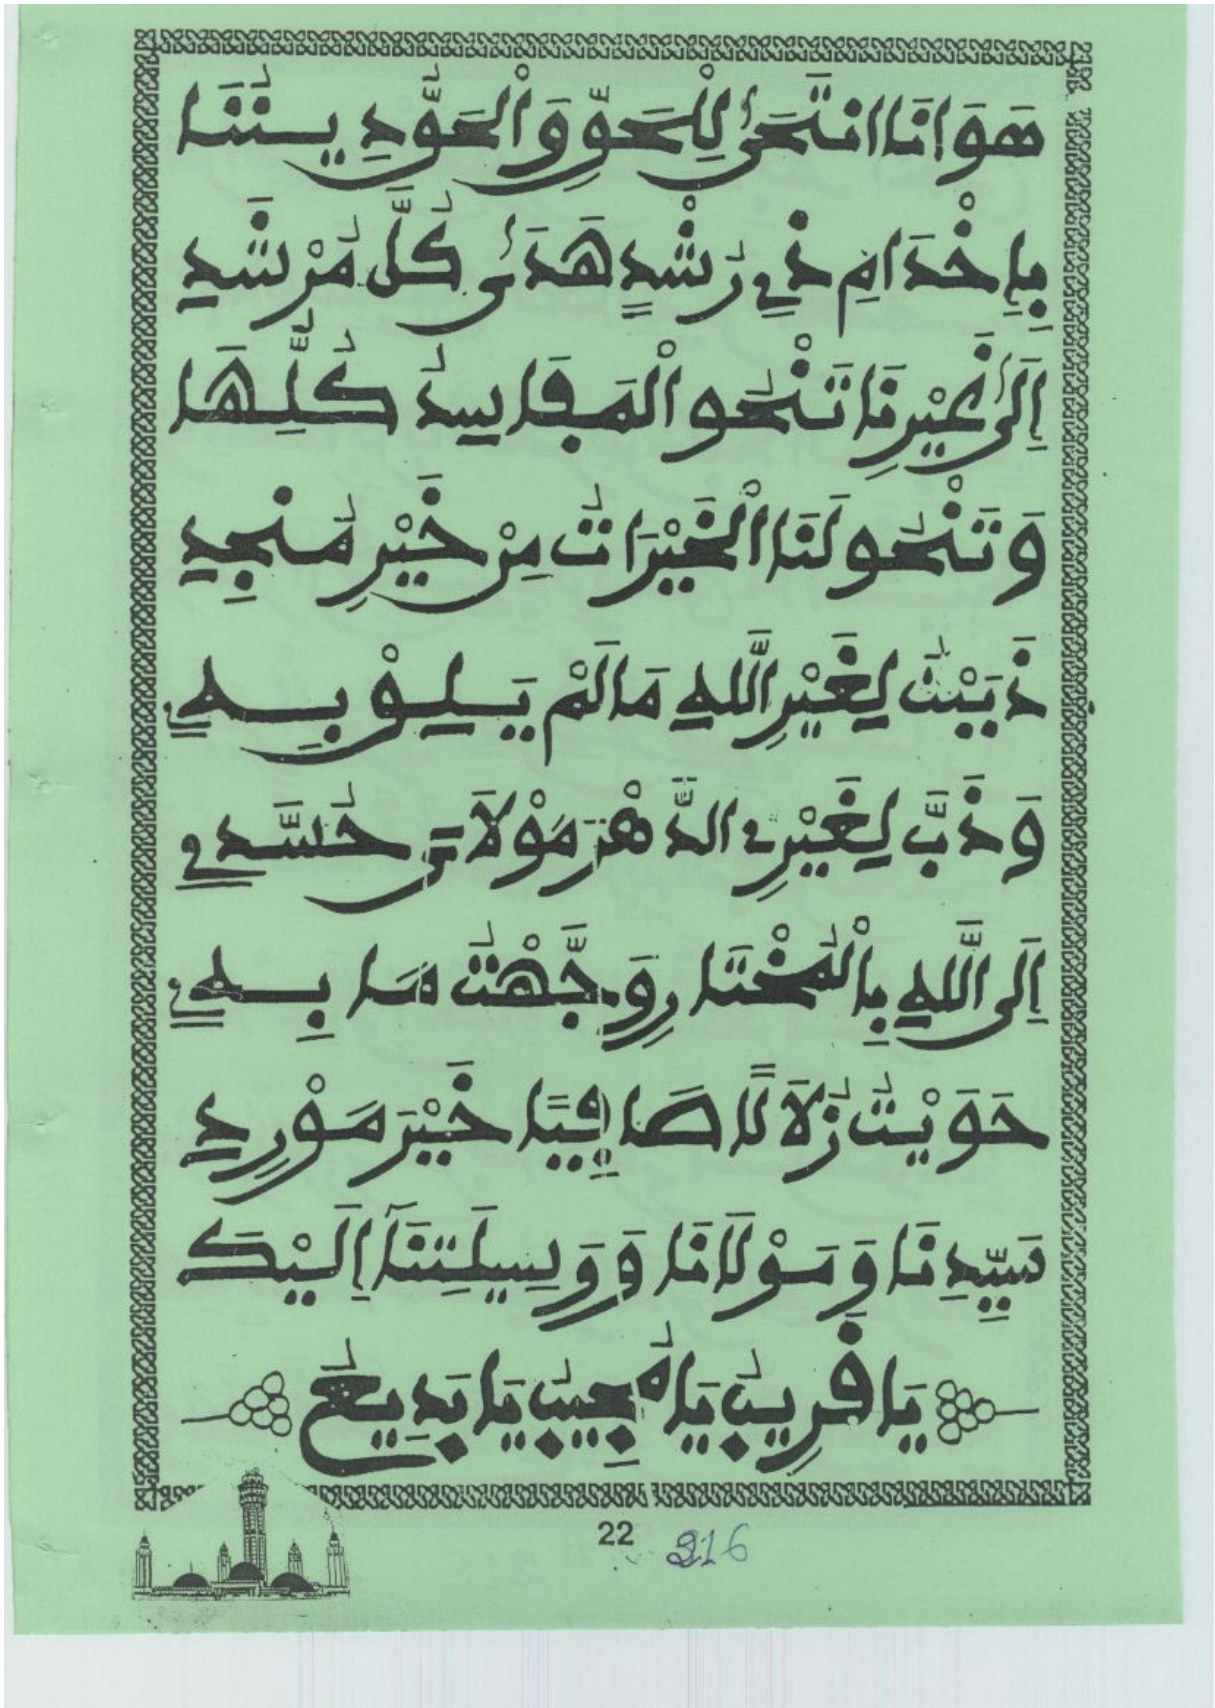 هَوَانَا انْتَحَى لِلْحَقِّ وَالْحَقُّ دِينُنَا
بِإِخْدَامِ ذِي رُشْدٍ هَدَى كُلَّ مُرْشِدِ
إِلَى غَيْرِنَا تَنْحُو الْمَفَاسِدُ كُلُّهَا
وَتَنْحُو لَنَا الْخَيْرَاتُ مِنْ خَيْرِ مُنْجِدِ
ذَبَبْتُ لِغَيْرِ اللَّهِ مَا لَمْ يَلِقْ بِهِ
وَذَبَّ لِغَيْرِي الدَّهْرَ مَوْلَايَ حُسَّدِي
إِلَى اللَّهِ بِالْمُخْتَارِ وَجَّهْتُ مَا بِهِ
حَوَيْتُ زُلَالًا صَافِيًا خَيْرَ مَوْرِدِ
سَيِّدِنَا وَمَوْلَانَا وَوَسِيلَتِنَا إِلَيْكَ
يَا قَرِيبُ يَا مُجِيبُ يَا بَدِيعُ
22 216